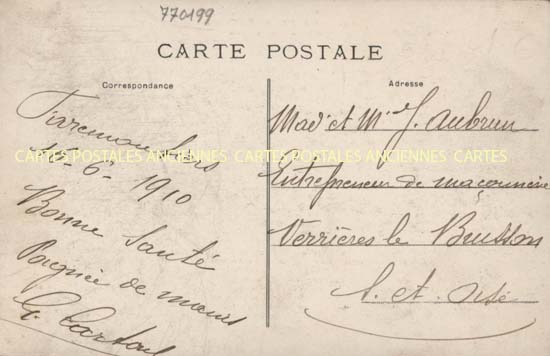 770199
CARTE POSTALE
Correspondance
Adresse
6 - 1910
Bonne Santé
Poignée de mains
G.
Mad et Mr J. Aubrun
Entrepreneur de maçonnerie
Verrières le Buisson
S. et Oise
CARTES POSTALES ANCIENNES CARTES POSTALES ANCIENNES CARTES